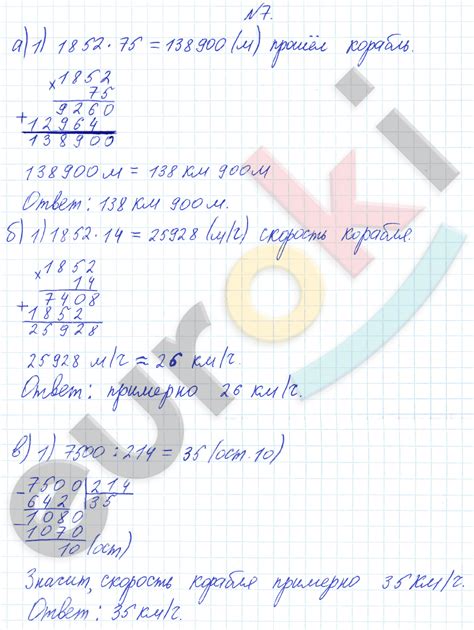 №7.
а) 1) 1852 · 75 = 138900 (м) прошёл корабль.
× 1852
75
9260
+ 12964
138900
138900 м = 138 км 900 м
Ответ: 138 км 900 м.
б) 1) 1852 · 14 = 25928 (м/ч) скорость корабля.
× 1852
14
7408
+ 1852
25928
25928 м/ч ≈ 26 км/ч.
Ответ: примерно 26 км/ч.
в) 1) 7500 : 214 = 35 (ост. 10)
- 7500 | 214
642 | 35
- 1080
1070
10 (ост)
Значит, скорость корабля примерно 35 км/ч.
Ответ: 35 км/ч.
euroki